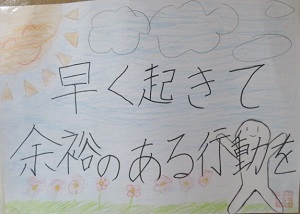 早く起きて
余裕のある行動を